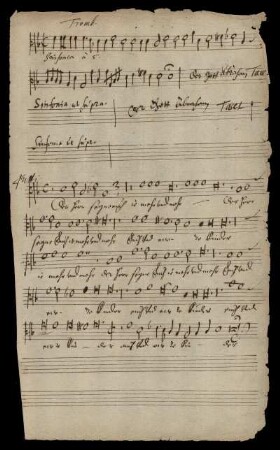 Tremb.
Sinfonia à 5
Der Gott Abraham Tacet
Sinfonia ut supra
Der Gott Abraham Tacet
Sinfonia ut supra
Der Herr segne euch je mehr und mehr Der Herr
segne euch je mehr und mehr euch und eu- re Kinder
je mehr und mehr der Herr segne euch je mehr und mehr euch und
eu- re Kinder euch und eure Kinder euch und
eure Kin- der euch und eure Kin- der